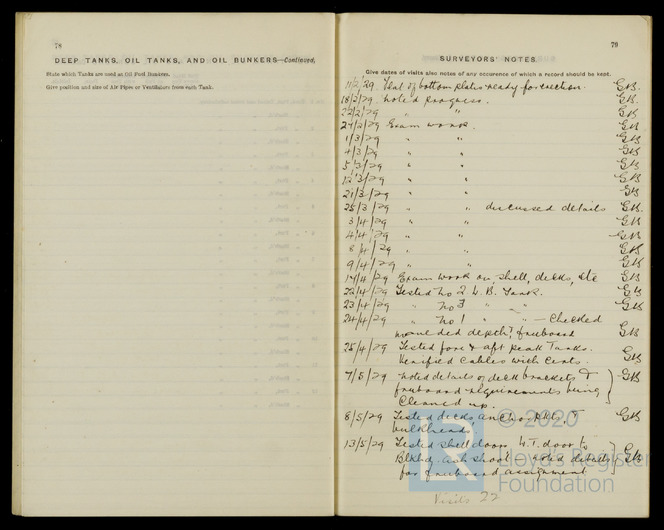 78
DEEP TANKS, OIL TANKS, AND OIL BUNKERS—Continued.
State which Tanks are used as Oil Fuel Bunkers.
Give position and size of Air Pipes or Ventilators from each Tank.
79
SURVEYORS' NOTES.
Give dates of visits also notes of any occurence of which a record should be kept.
11/2/29. of bottom plates ready for erection. GB.
18/2/29. Noted progress. GB.
22/2/29 " " GB
27/2/29 Exam work. GB
1/3/29 " " GB
4/3/29 " " GB
5/3/29 " " GB
12/3/29 " " GB
21/3/29 " " GB
25/3/29 " " discussed details GB.
3/4/29 " " GB
4/4/29 " " GB
8/4/29 " " GB
9/4/29 " " GB
/4/29 Exam work on shell, decks, etc GB
22/4/29 Tested No 2 W.B. Tank. GB
23/4/29 " No 3 " " GB
24/4/29 " No 1 " " — Checked
moulded depth, freeboard GB
25/4/29 Tested fore & aft peak Tanks.
Verified cables with Certs. GB
7/5/29 Noted details of deck brackets &
freeboard requirements being GB
Cleaned up.
8/5/29 Tested decks anchor &
bulkheads GB
13/5/29 Tested shell doors W.T. door to
Blkhd. ash shoot noted details GB
for freeboard assignment
Visits 22
© 2020
Lloyd's Register
Foundation